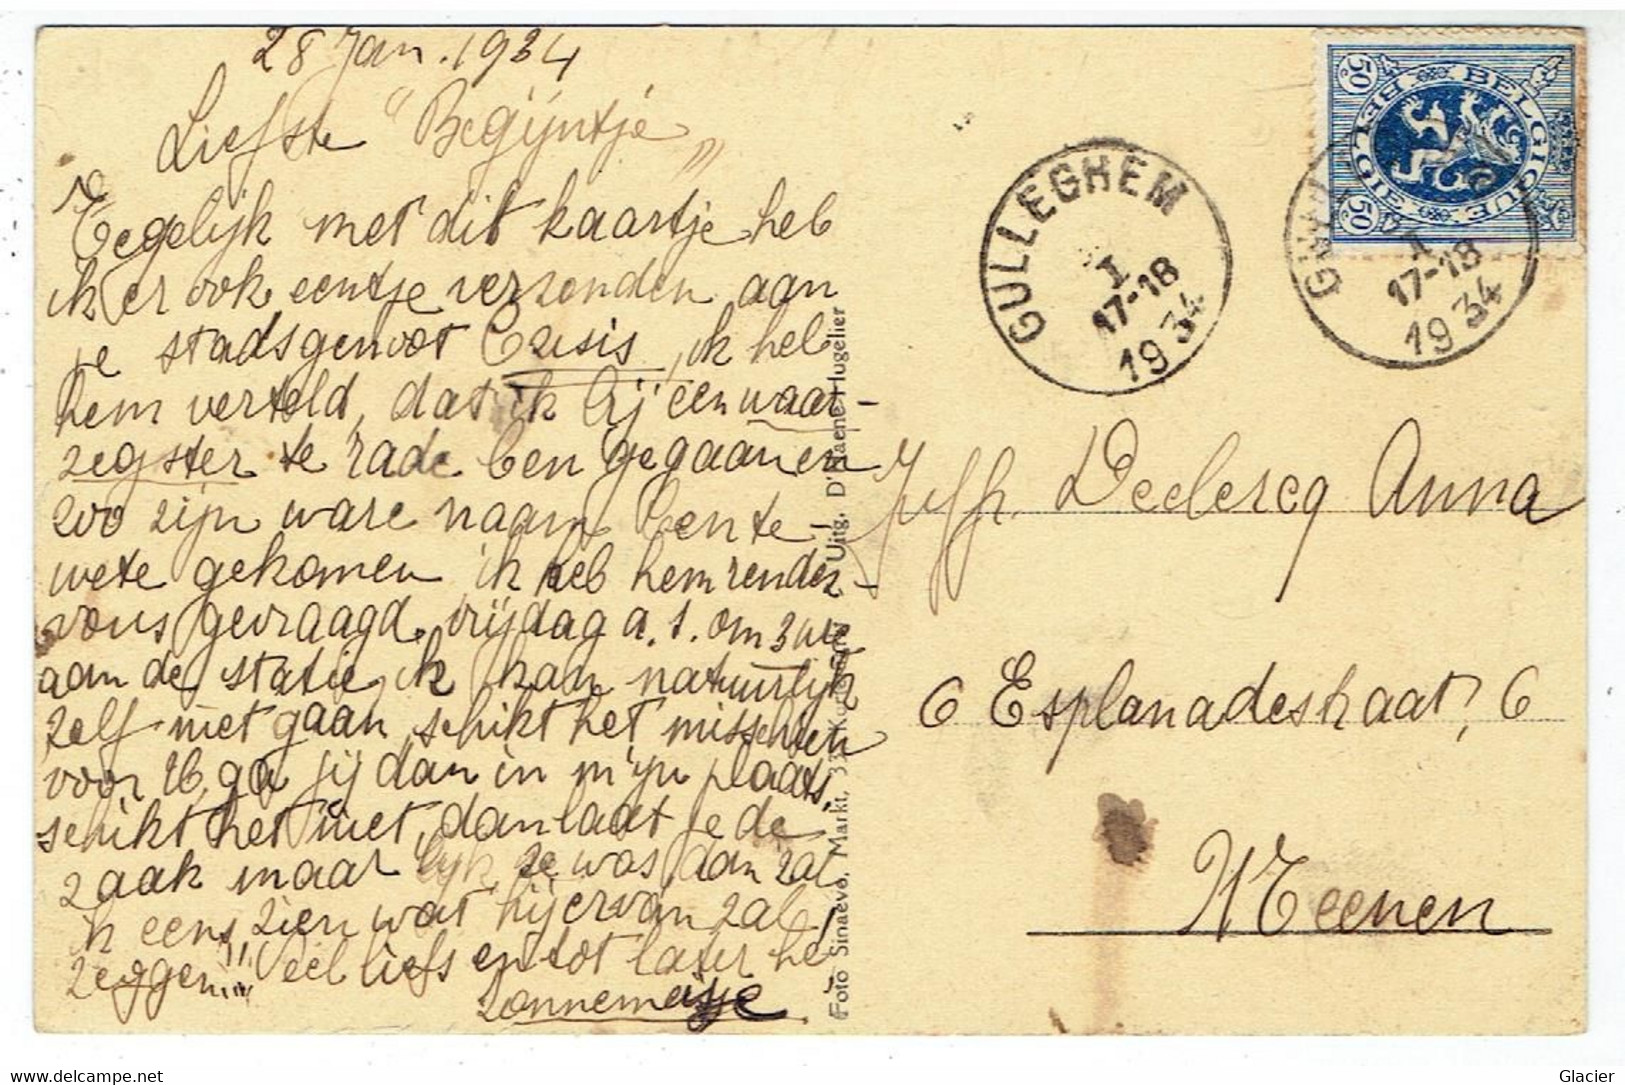 28 Jan. 1934
Liefste "Begijntje"
Tegelijk met dit kaartje heb
ik er ook eentje verzonden aan
je stadsgenoot Crisis, ik heb
hem verteld, dat ik bij een waar-
zegster te rade ben gegaan en
zoo zijn ware naam ben te
wete gekomen, ik heb hem rendez-
vous gevraagd vrijdag a.s. om 3 ure
aan de statie, ik kan natuurlijk
zelf niet gaan, schikt het misschien
voor U, ga jij dan in m'yn plaats,
schikt het niet, dan laat je de
zaak maar lijk ze was, dan zal
ik eens zien wat hij ervan zal
zeggen!!! Veel liefs en tot later he
Zonnemeisje
Foto Sinaeve, Markt, 33, Uitg. D'Haene-Hugelier
GULLEGHEM
I
17-18
1934
GULLEGHEM
I
17-18
1934
BELGIQUE BELGIE
50
50
Juffr. Declercq Anna
6 Esplanadestraat, 6
Meenen
Glacier
www.delcampe.net